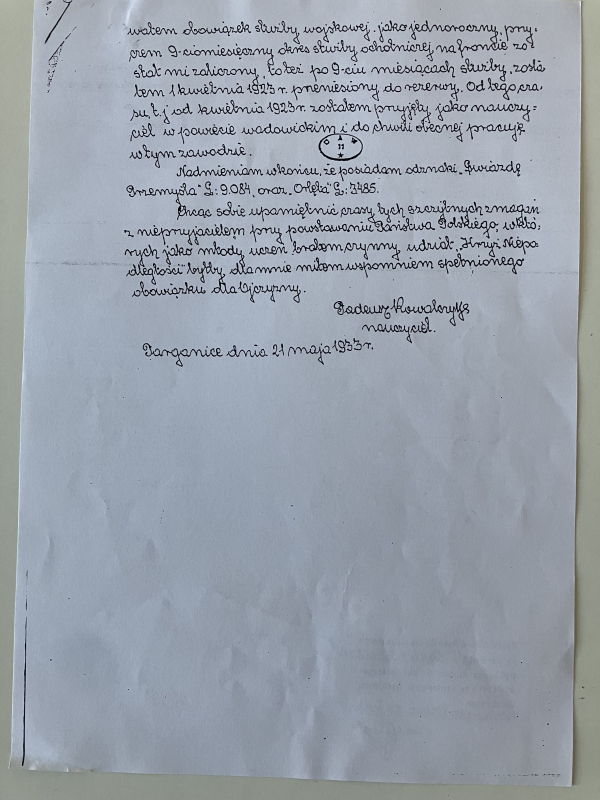 wałem obowiązek służby wojskowej, jako jednoroczny, przy-
czem 9-ciomiesięczny okres służby ochotniczej na froncie zo-
stał mi zaliczony, to też po 9-ciu miesiącach służby, zosta-
łem 1 kwietnia 1923 r. przeniesiony do rezerwy. Od tego cza-
su, t.j. od kwietnia 1923 r. zostałem przyjęty jako nauczy-
ciel w powiecie wadowickim i do chwili obecnej pracuję
w tym zawodzie.
Nadmieniam wkońcu, że posiadam odznaki „Gwiazdę
Przemyśla" L: 9.084, oraz „Orlęta" L: 3485.
Chcąc sobie upamiętnić czasy tych szczytnych zmagań
z nieprzyjacielem przy powstawaniu Państwa Polskiego, w któ-
rych jako młody uczeń brałem czynny udział, Krzyż Niepo-
dległości byłby dla mnie miłem wspomnieniem spełnionego
obowiązku dla Ojczyzny.
Tadeusz
nauczyciel.
Targanice dnia 21 maja 1933 r.